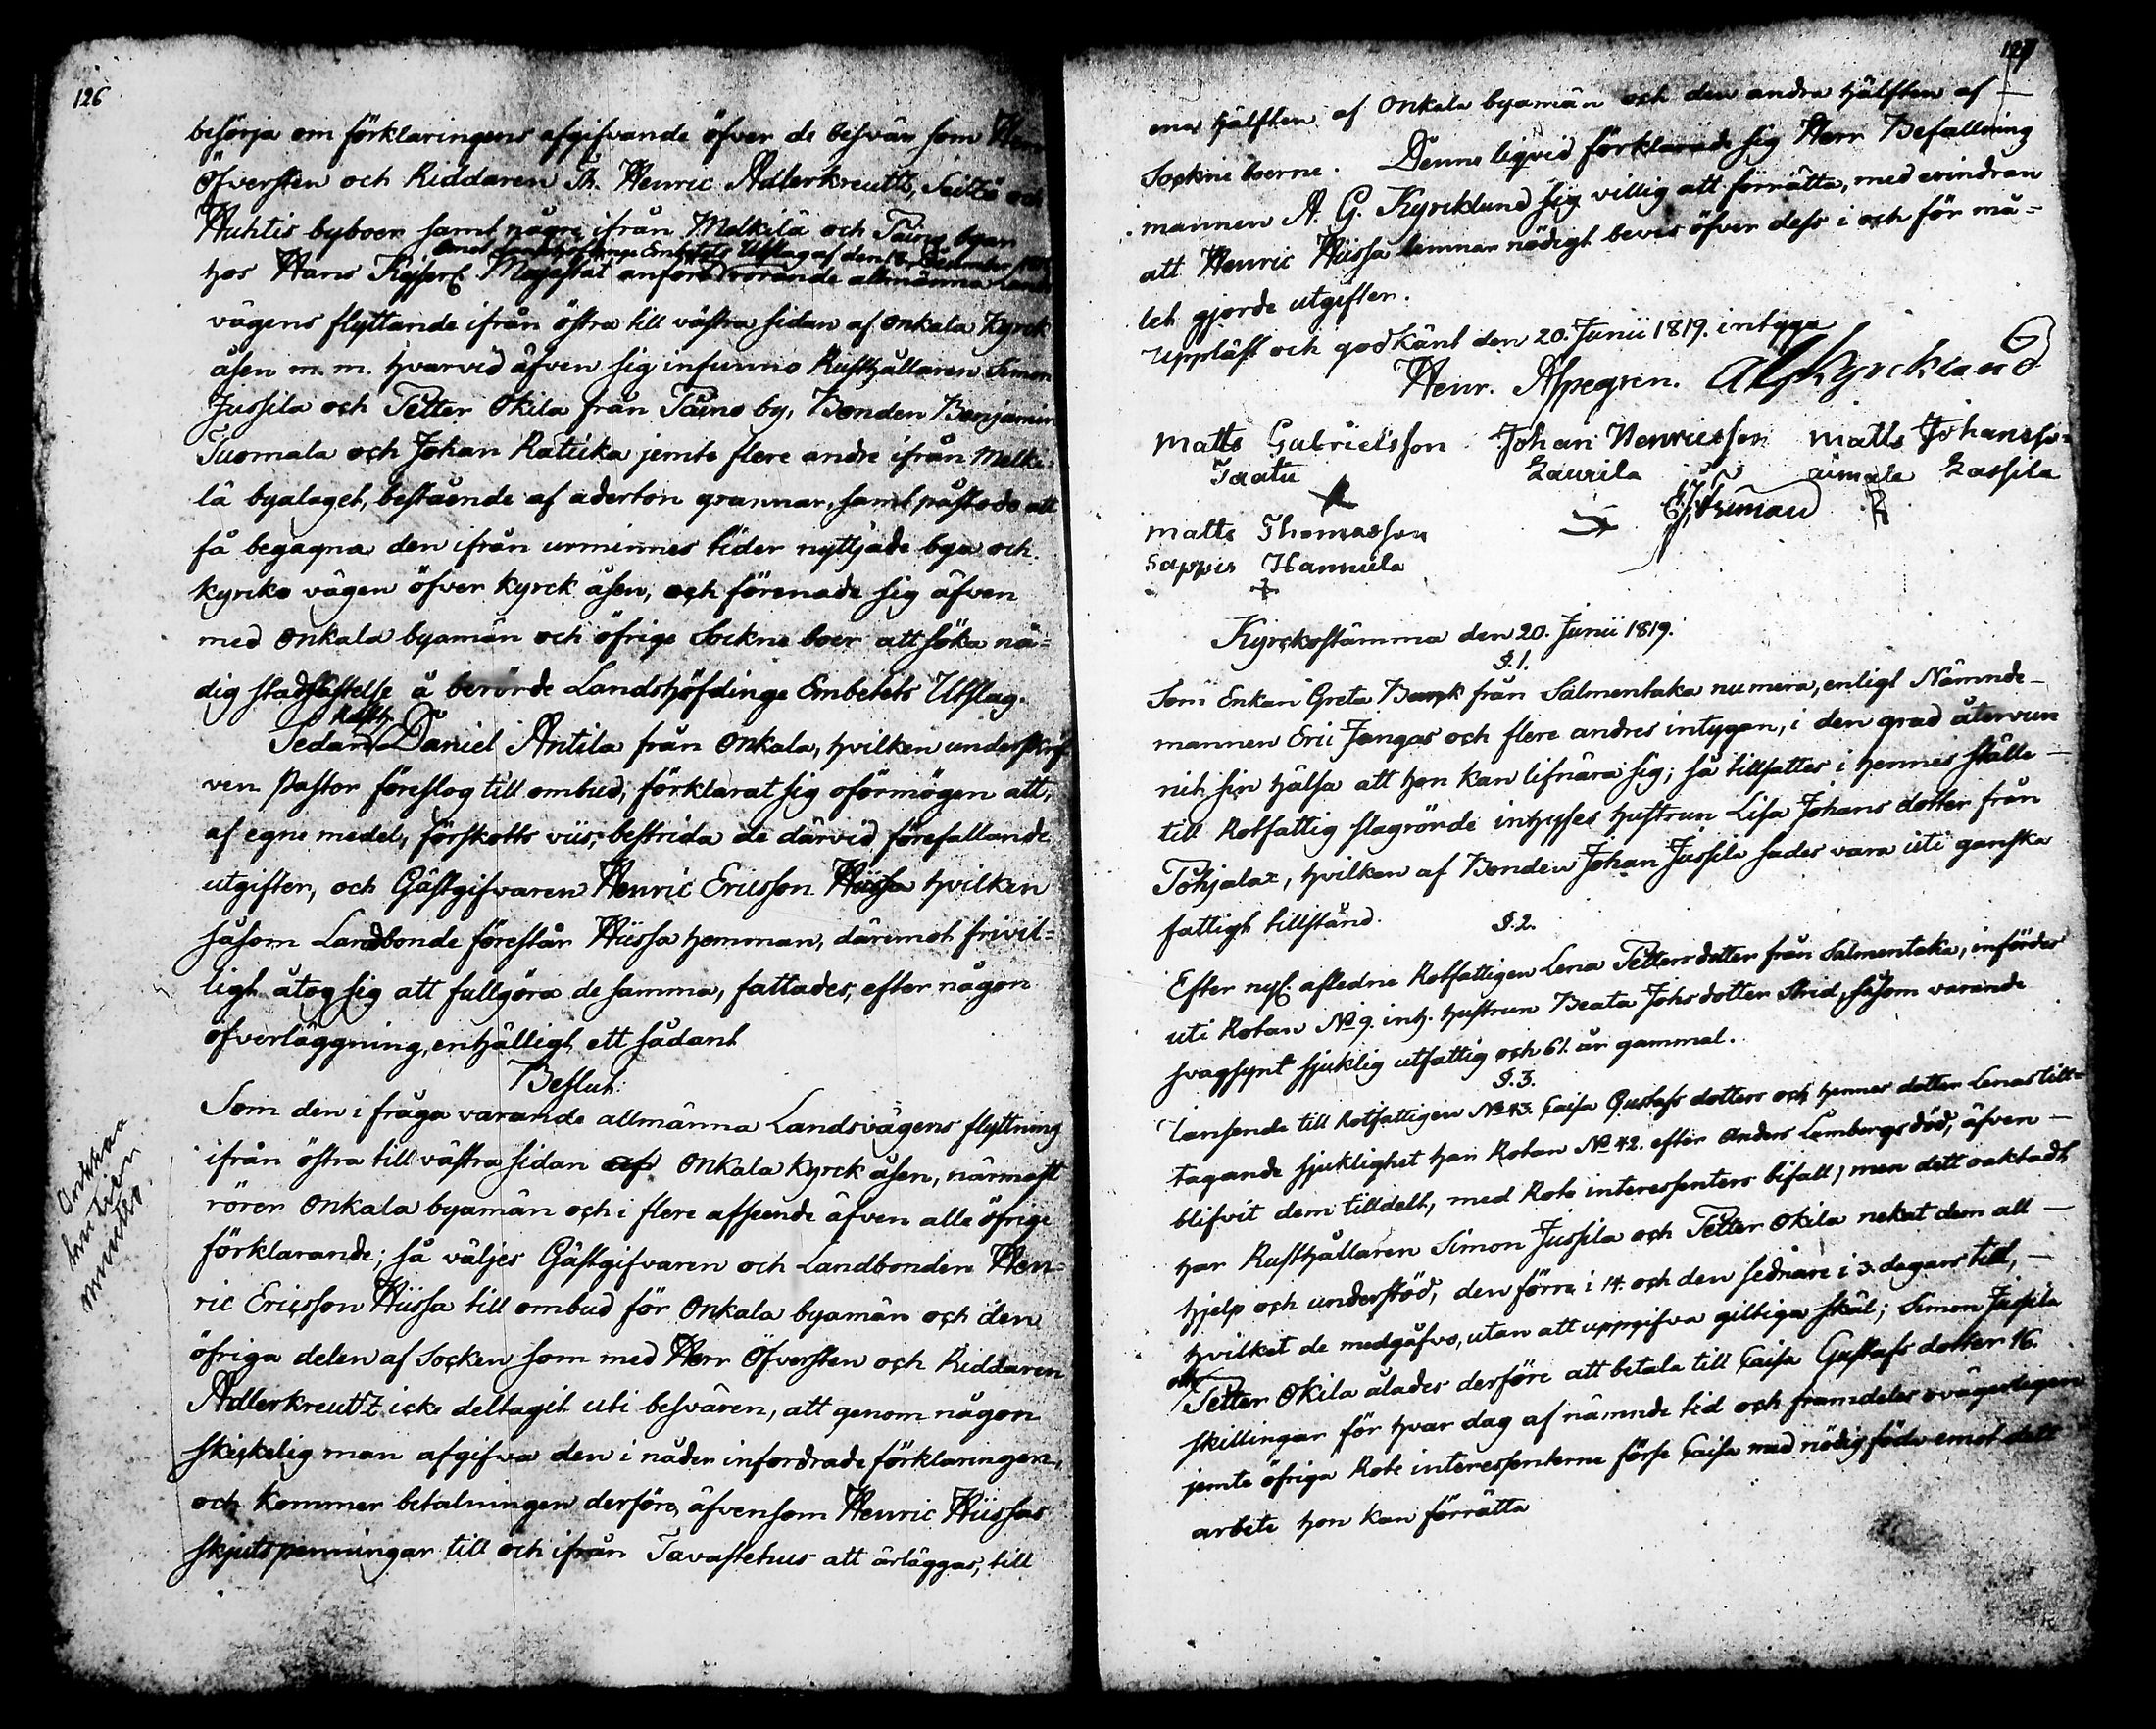 126
besörja om förklaringens afgifvande öfver de besvär som Herr
Öfversten och Riddaren Th. Henric Adlerkreutts, Seitzö och
Huhtis byboer samt några ifrån Melkilä och Taino byar
emot Landshöfdinge Embetets Utslag af den 18 December
hos Hans Kejserl Majestät anfört rörande allmänna Lands
vägens flyttande ifrån östra till västra sidan af Onkala Kyrck
åsen m. m. hvarvid äfven sig infunno Rusthållaren Simon
Jussila och Petter Okila från Taino by, Bonden Benjamin
Tuomala och Johan Ratuka jemte flere andre ifrån Melki-
lä byalaget, bestående af aderton grannar, samt påstodo att
få begagna den ifrån urminnes tider nyttjade bya och
kyrko vägen öfver Kyrck åsen, och förenade sig äfven
med Onkala byamän och öfrige Sockne boer att söka nå=
dig stadfästelse å berörde Landshöfdinge Embetets Utslag.
Rusth.
Sedan Daniel Antila från Onkala, hvilken underskrif
ven Pastor föreslog till ombud, förklarat sig oförmögen att,
af egne medel, förskotts viis, bestrida de därvid förefallande
utgifter, och Gästgifvaren Henric Ericsson Hiissa hvilken
såsom Landbonde förestår Hiissa hemman, däremot frivil=
ligt åtog sig att fullgöra de samma, fattades, efter någon
öfverläggning, enhälligt ett sådant
Beslut:
Som den i fråga varande allmänna Landsvägens flyttning
ifrån östra till västra sidan af Onkala Kyrck åsen, närmast
rörer Onkala byamän och i flere afseende äfven alle öfrige
förklarande; så väljes Gästgifvaren och Landbonden Hen=
ric Ericsson Hiissa till ombud för Onkala byamän och den
öfriga delen af Socken som med Herr Öfversten och Riddaren
Adlerkreuttz icke deltagit uti besvären, att genom någon
skickelig man afgifva den i nåder infordrade förklaringen,
och kommer betalningen derföre, äfvensom Henric Hiissas
skjutspenningar till och ifrån Tavastehus att ärläggas, till
Onkkaa
tien
muutto.
127
ena hälften af Onkala byamän och den andra hälften af —
Sockne boerne. Denna liqvid förklarade sig Herr Befallning
mannen A. G. Kyrcklund sig villig att förrätta, med erindran
att Henric Hiissa lemnar nödigt bevis öfver dess i och för må=
let gjorde utgifter.
Uppläst och godkänt den 20. Junii 1819. intyga
Henr. Aspegren. AGKyrcklund
Matts Gabrielsson Johan Henricsson Matts Johansso=
Taatu Laurila Lassila
Matts Thomasson
Hannula
Kyrckostämma den 20. Junii 1819.
§. 1.
Som Enkan Greta från Salmentaka numera, enligt Nämnde—
mannen Eric Jangas och flere andres intygan, i den grad återvun
nit sin hälsa att hon kan lifnära sig; så tillsattes i hennes ställe —
till Rotfattig slagrörde inhyses hustrun Lisa Johans dotter från
Pohjala, hvilken af Bonden Johan Jussila sades vara uti ganska
fattigt tillstånd.
§. 2.
Efter nyl. afledne Rotfattigen Lena Pettersdotter från Salmentaka, infördes
uti Rotan № 9. inh. hustrun Beata Johsdotter Strid, såsom varande
svagsynt sjuklig utfattig och 61. år gammal.
§. 3.
Tanseende till Rotfattigen № 43. Caisa Gustafs dotters och hennes dotter Lenas till=
tagande sjuklighet har Rotan № 42. efter Anders Lembergs död, äfven —
blifvit dem tilldelt, med Rote interessenters bifall; men dett oaktadt
har Rusthållaren Simon Jussila och Petter Okila nekat dem all —
hjelp och understöd, den förre i 14. och den sednare i 3. dagars tid, —
hvilket de medgåfvo, utan att uppgifva giltiga skäl; Simon Jussila
och
Petter Okila ålades derföre att betala till Caisa Gustafs dotter 16.
skillingar för hvar dag af nämnde tid och framdeles ovägerligen
jemte öfriga Rote interessenterne förse Caisa med nödig föda emot dett
arbete hon kan förrätta